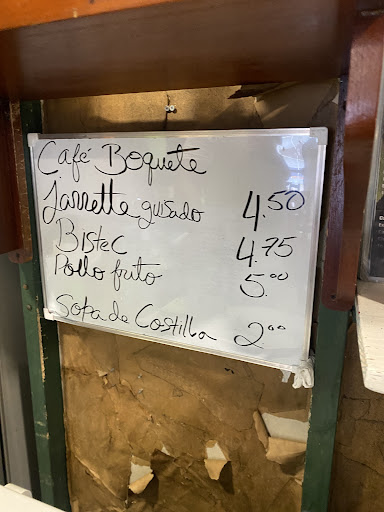 Café Boquete
Jarrette guisado 4.50
Bistec 4.75
Pollo frito 5.00
Sopa de Costilla 2.00